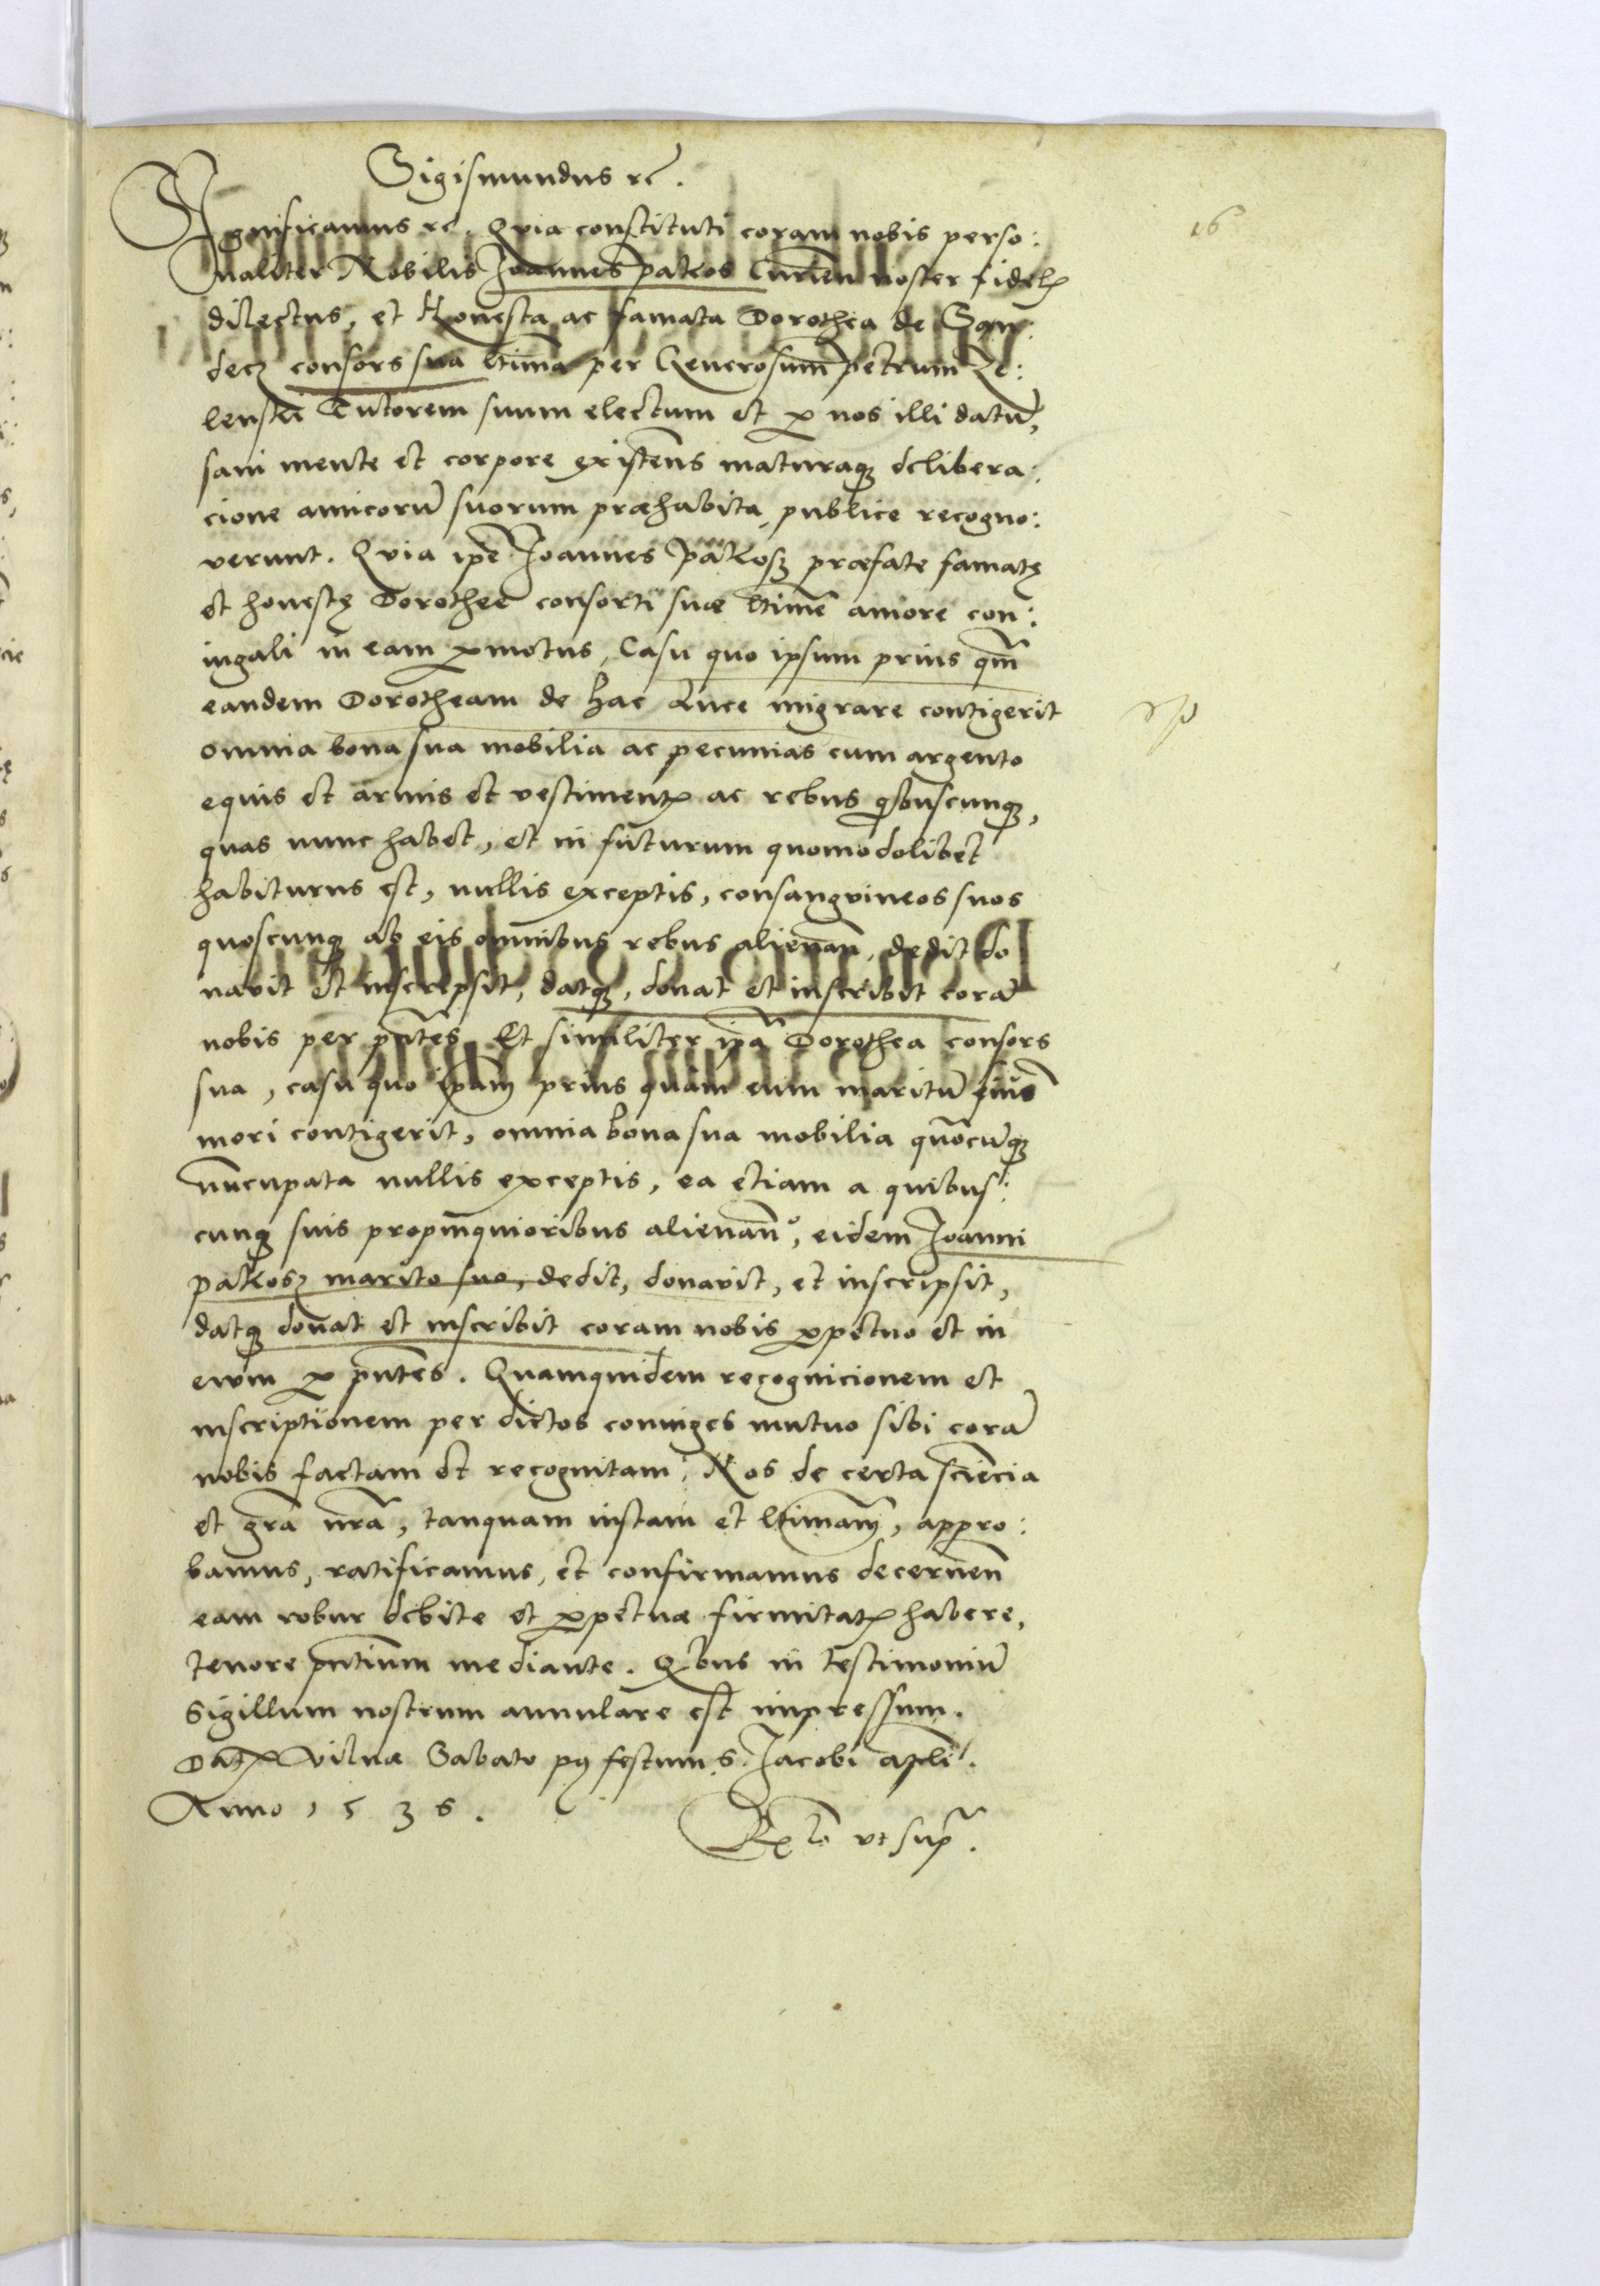 16
Sigismundus rc.
Significamus rc. Quia constituti coram nobis perso:
naliter Nobilis Joannes patkos Curien noster fidelis
dilectus, et Honesta ac famata Dorothea de San:
decz consors sua ltima per Generosum petrum
lenski Tutorem suum electum et p nos illi datu,
sani mente et corpore existens maturaq delibera:
cione amicoru suorum præhabita publice recogno:
verunt. Quia ipe Joannes patkosz præfate famatę
et honestę Dorothee consorti suæ ltime amore con:
iugali in eam pmotus, Casu quo ipsum prius qm
eandem Dorotheam de hac luce migrare contigerit
omnia bona sua mobilia ac pecunias cum argento
equis et armis et vestimentis ac rebus qbuscunq,
quas nunc habet, et in futurum quomodolibet
habiturus est, nullis exceptis, consanguineos suos
quoscunq ab eis omnibus rebus alienan, dedit do
navit et inscripsit, datq, donat et inscribit cora
nobis per pntes. Et similiter ipa Dorothea consors
sua, casu quo ipam prius quam eum maritu
mori contigerit, omnia bona sua mobilia quocuq
nucupata nullis exceptis, ea etiam a quibus:
cunq suis propinquioribus alienan, eidem Joanni
patkosz marito suo, dedit, donavit, et inscripsit,
datq donat et inscribit coram nobis ppetuo et in
evum p pntes. Quamquidem recognicionem et
inscriptionem per dictos coniuges mutuo sibi cora
nobis factam et recognitam, Nos de certa sciencia
et gra nra, tanquam iustam et ltimam, appro:
bamus, ratificamus, et confirmamus decernen
eam robur debite et ppetuæ firmitatis habere,
tenore pntium mediante. Qbus in testimoniu
Sigillum nostrum annulare est impressum.
Dat Vilnæ Sabato p festum S. Jacobi apli.
Anno 1536.
ut sup.